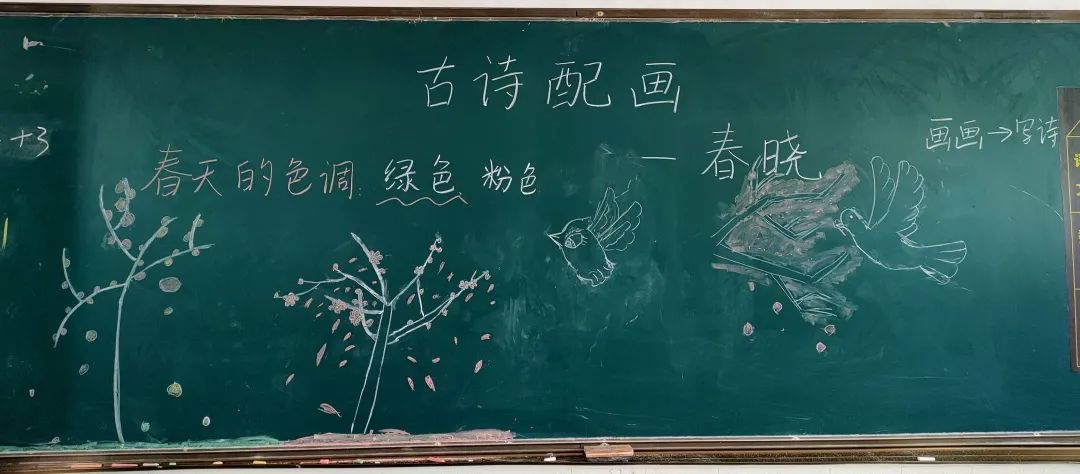 古诗配画
— 春晓
画画→写诗
春天的色调: 绿色 粉色
+3